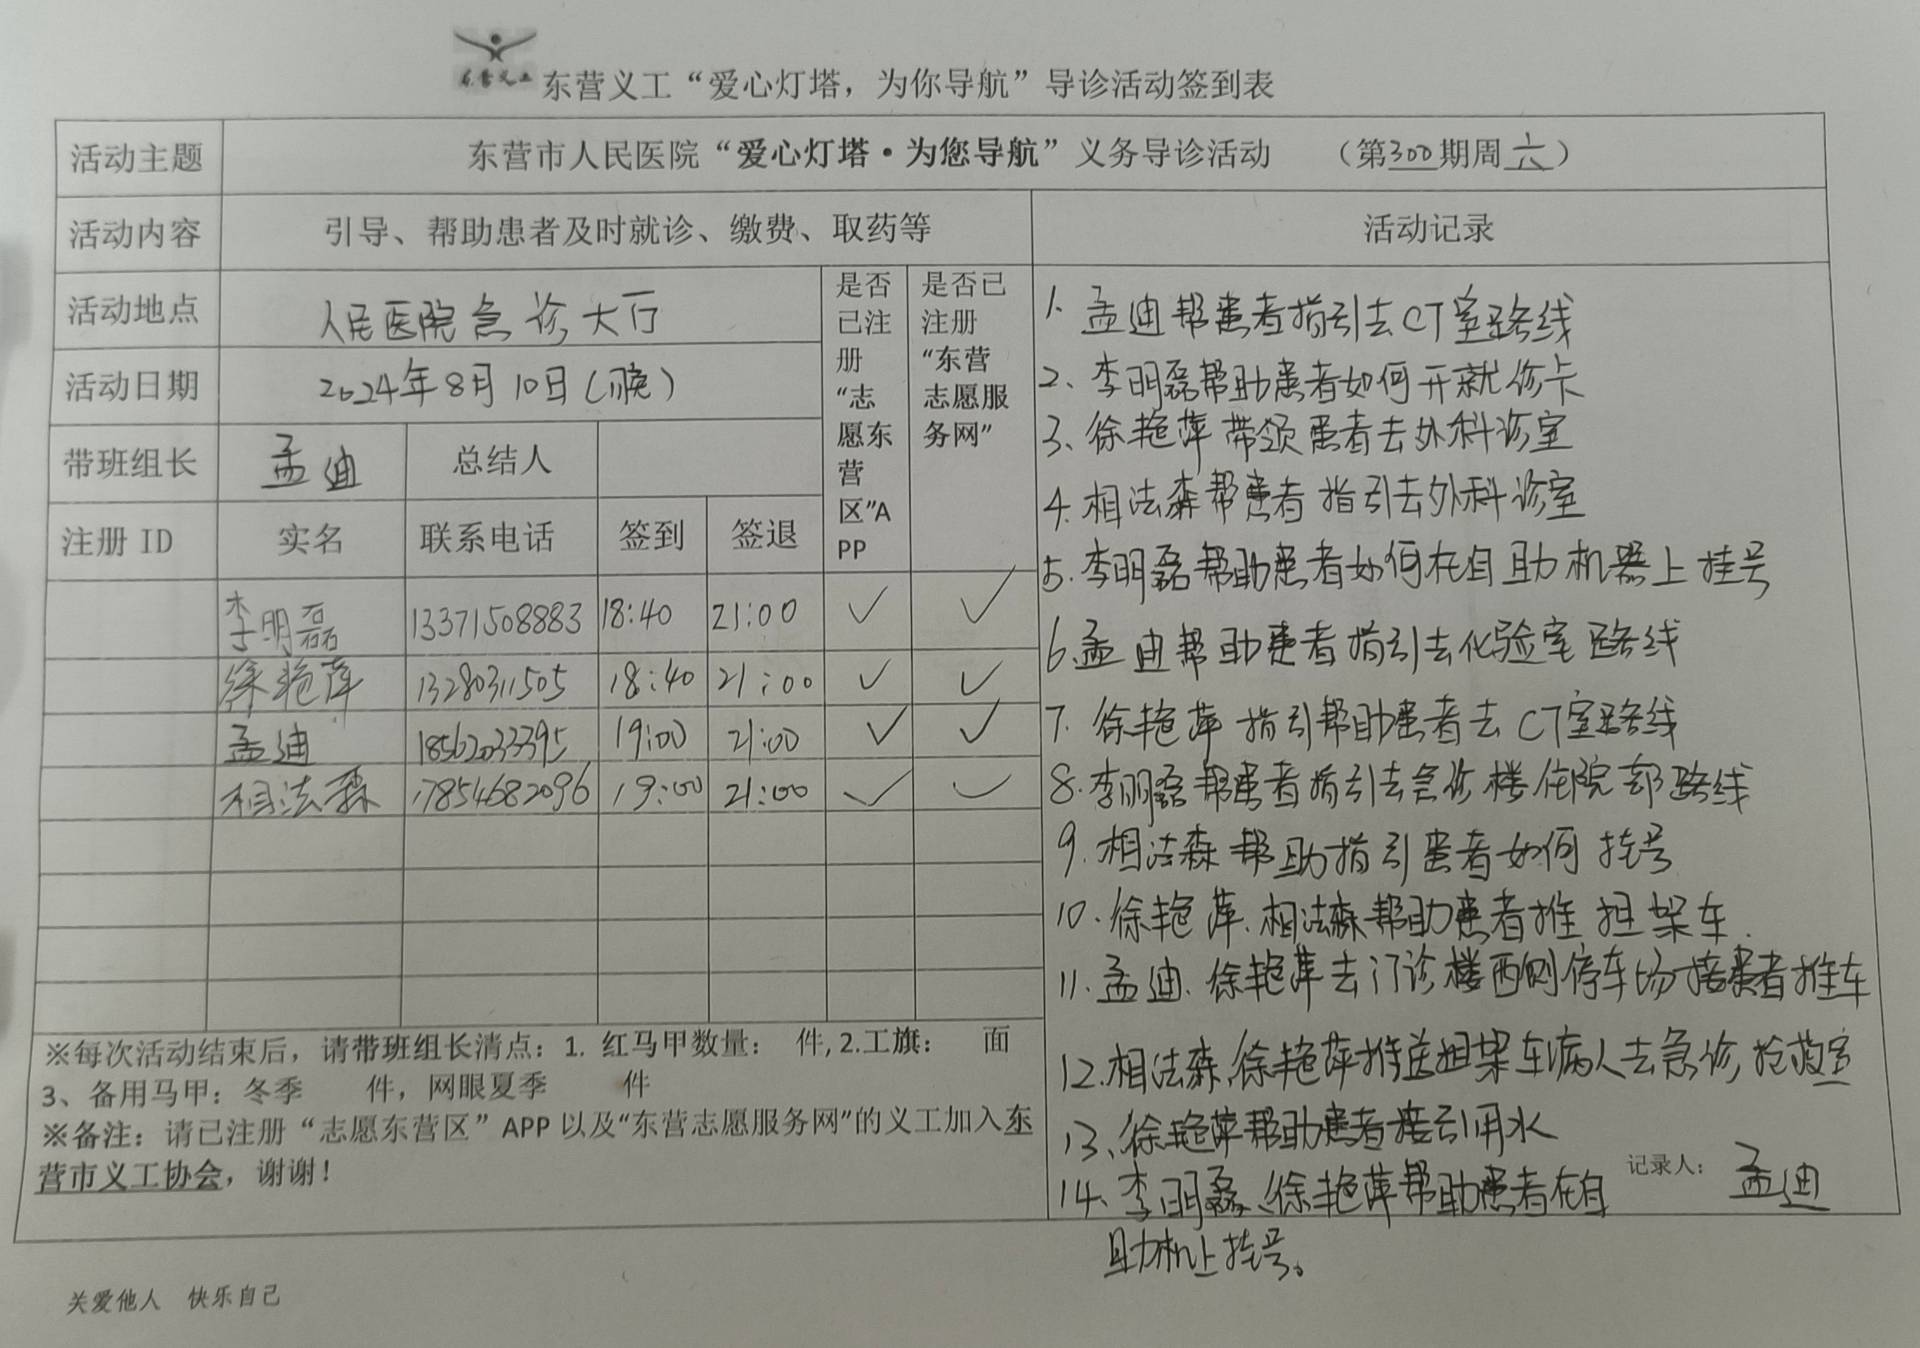 东营义工
东营义工“爱心灯塔，为你导航”导诊活动签到表
活动主题 东营市人民医院“爱心灯塔·为您导航”义务导诊活动 （第300期周六）
活动内容 引导、帮助患者及时就诊、缴费、取药等 活动记录
活动地点 人民医院急诊大厅
活动日期 2024年8月10日(晚)
带班组长 孟迪 总结人
是否
已注
册
“志
愿东
营
区”A
PP
是否已
注册
“东营
志愿服
务网”
注册 ID 实名 联系电话 签到 签退
李明磊 13371508883 18:40 21:00 ✓ ✓
徐艳萍 13280311505 18:40 21:00 ✓ ✓
孟迪 18562033395 19:00 21:00 ✓ ✓
相法森 17854682096 19:00 21:00 ✓ ✓
※每次活动结束后，请带班组长清点：1. 红马甲数量： 件, 2.工旗： 面
3、备用马甲：冬季 件，网眼夏季 件
※备注：请已注册“志愿东营区”APP 以及“东营志愿服务网”的义工加入东
营市义工协会，谢谢！
1. 孟迪帮患者指引去CT室路线
2、李明磊帮助患者如何开就诊卡
3、徐艳萍带领患者去外科诊室
4. 相法森帮患者指引去外科诊室
5. 李明磊帮助患者如何在自助机器上挂号
6.孟迪帮助患者指引去化验室路线
7. 徐艳萍指引帮助患者去CT室路线
8. 李明磊帮患者指引去急诊楼住院部路线
9. 相法森帮助指引患者如何挂号
10. 徐艳萍.相法森帮助患者推担架车.
11. 孟迪.徐艳萍去门诊楼西侧停车场接患者推车
12.相法森,徐艳萍推送担架车病人去急诊抢救室
13、徐艳萍帮助患者接引用水
14、李明磊、徐艳萍帮助患者在自
助机上挂号。
记录人： 孟迪
关爱他人 快乐自己